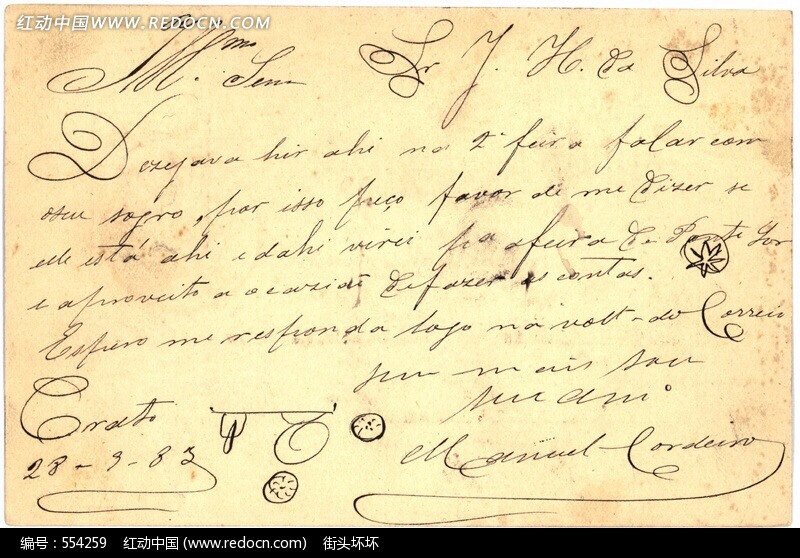 红动中国 WWW.REDOCN.COM
Sr J. H. da Silva
Dezejava hir ahi na 2ª feira falar com
o seu sogro, por isso faço favor de me dizer se
elle está ahi e dahi virei pa a feira de Ponte Sor
e aproveito a ocazião de fazer as contas.
Espero me responda logo na volta do Correio
sem mais sou
seu am.º
Manuel Cordeiro
Crato
23-9-83
编号：554259 红动中国 (www.redocn.com) 街头坏坏